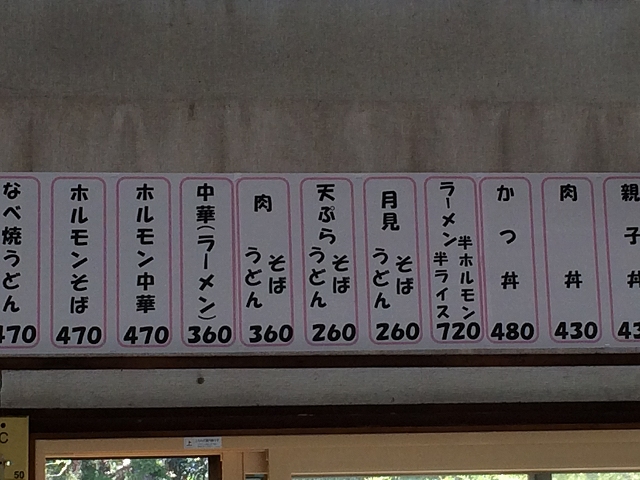 なべ焼うどん
470
ホルモンそば
470
ホルモン中華
470
中華(ラーメン)
360
肉
そば
うどん
360
天ぷら
そば
うどん
260
月見
そば
うどん
260
ラーメン
半ホルモン
半ライス
720
かつ丼
480
肉丼
430
親子丼
43
50